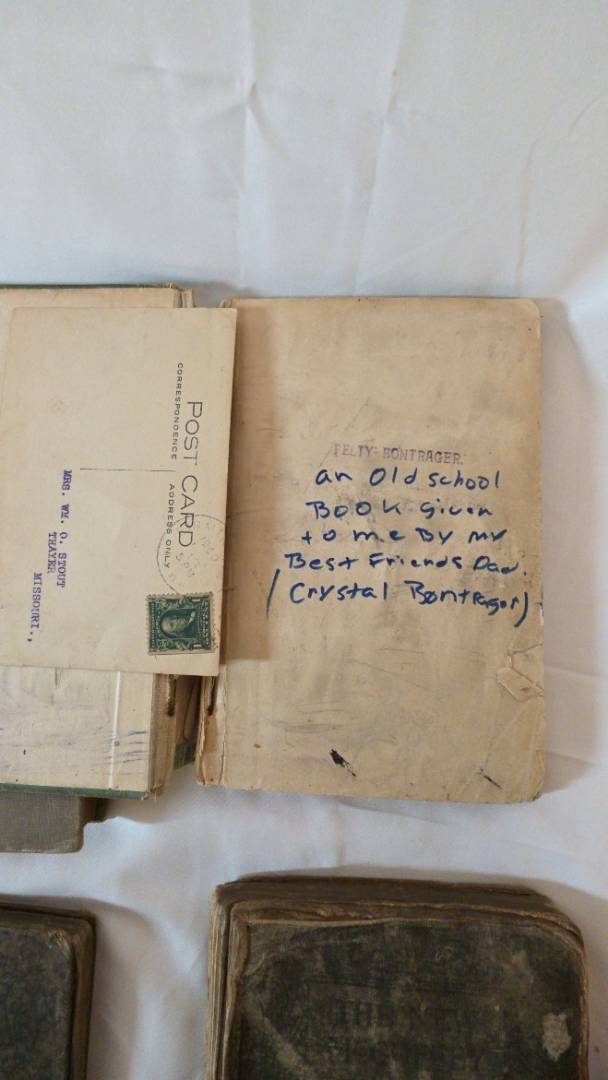 POST CARD
CORRESPONDENCE
ADDRESS ONLY
MRS. WM. O. STOUT
THAYER
MISSOURI.,
PELTY-BONTRAGER.
an Old school
BOOK given
to me By my
Best Friends Dad.
(Crystal Bontrager)